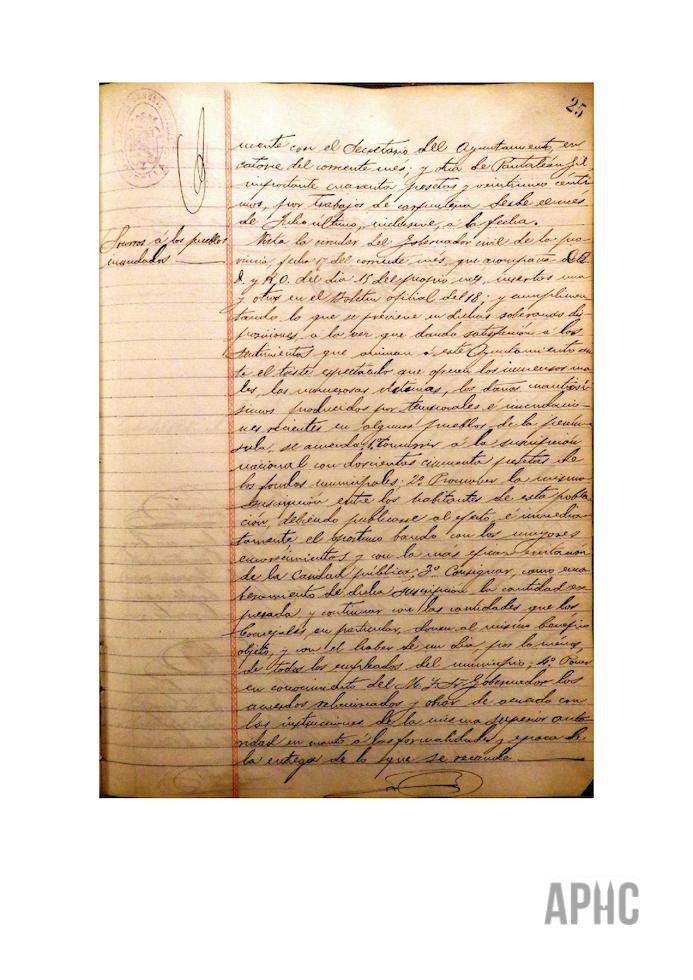 25
mente con el Secretario del Ayuntamiento, en
catorce del corriente mes; y otra de Pantaleón Gil
importante cuarenta pesetas y veinticinco cénti-
mos, por trabajos de carpintería desde el mes
de Julio último, inclusive, a la fecha.
Socorros á los pueblos
inundados
Vista la circular del Gobernador civil de la pro-
vincia, fecha 17 del corriente mes, que acompaña
y R.O. del día 15 del propio mes, insertos una
y otros en el Boletín oficial del 18; y cumplimen-
tando lo que se previene en dichas soberanas dis-
posiciones, a la vez que dando satisfacción a los
sentimientos que animan á este Ayuntamiento an-
te el triste espectáculo que ofrecen los inmensos ma-
les, las numerosas víctimas, los daños cuantiosí-
simos producidos por temporales é inundacio-
nes recientes en algunos pueblos de la penín-
sula, se acuerda: 1º Concurrir á la suscripción
nacional con doscientas cincuenta pesetas de
los fondos municipales; 2º Promover la misma
suscripción entre los habitantes de esta pobla-
ción, debiendo publicarse al efecto é inmedia-
tamente el oportuno bando con los mayores
encarecimientos y con la más eficaz excitación
de la Caridad pública; 3º Consignar, como enca-
bezamiento de dicha suscripción la cantidad ex-
presada y continuar con las cantidades que los
Concejales, en particular, donen al mismo benéfico
objeto, y con el haber de un día, por lo menos,
de todos los empleados del municipio; 4º Poner
en conocimiento del M. I. Sr. Gobernador los
acuerdos relacionados y obrar de acuerdo con
las instrucciones de la misma superior auto-
ridad en cuanto á las formalidades y época de
la entrega de lo que se recaude.
APHC